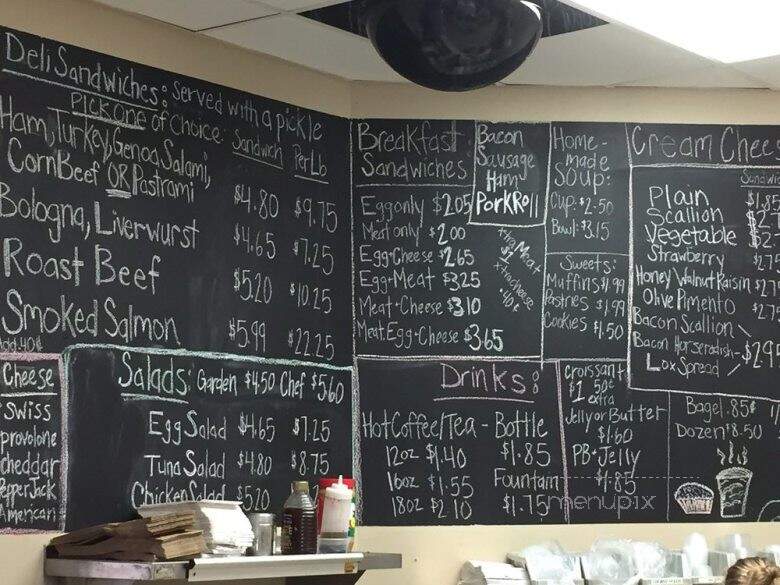 Deli Sandwiches: served with a pickle
PICK ONE of choice: Sandwich Per Lb
Ham, Turkey, Genoa Salami,
Corn Beef OR Pastrami $4.80 $9.75
Bologna, Liverwurst $4.65 $7.25
Roast Beef $5.20 $10.25
Smoked Salmon $5.99 $22.25
add .40¢
Cheese
Swiss
provolone
cheddar
PepperJack
American
Salads: Garden $4.50 Chef $5.60
Egg Salad $4.65 $7.25
Tuna Salad $4.80 $8.75
Chicken Salad $5.20
Breakfast
Sandwiches
Bacon
Sausage
Ham
Pork Roll
Egg only $2.05
Meat only $2.00
Egg+Cheese $2.65
Egg+Meat $3.25
Meat+Cheese $3.10
Meat.Egg+Cheese $3.65
xtra Meat
$1
xtra cheese
.40¢
Home-
made
Soup:
Cup: $2.50
Bowl: $3.15
Sweets:
Muffins $1.99
Pastries $1.99
Cookies $1.50
Cream Chee
Sandwic
Plain $1.85
Scallion
Vegetable
Strawberry $2.75
Honey Walnut Raisin
Olive Pimento $2.75
Bacon Scallion
Bacon Horseradish - $2.95
Lox Spread
Drinks:
Hot Coffee/Tea - Bottle
12oz $1.40 $1.85
16oz $1.55 Fountain
18oz $2.10 $1.75
Croissant
$1 .50¢
extra
Jelly or Butter
$1.60
PB+Jelly
$1.85
Bagel .85¢
Dozen $8.50
menupix